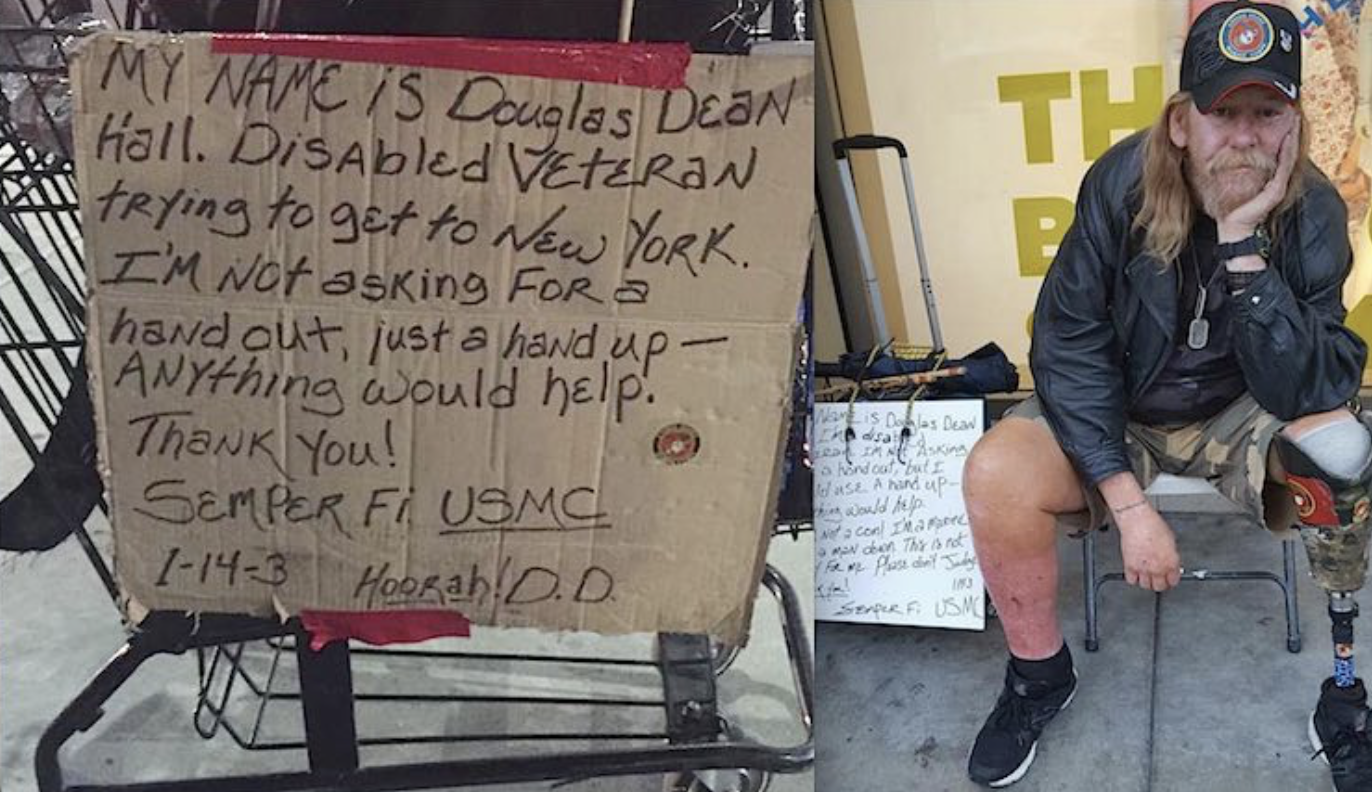 MY NAME is Douglas Dean
Hall. Disabled Veteran
trying to get to New York.
I'm Not asking For a
hand out, just a hand up —
Anything would help.
Thank You!
Semper Fi USMC
1-14-3 Hoorah! D.D.
TH
B
Name is Douglas Dean
I'm disabled
I'm Not Asking
a hand out, but I
use. A hand up —
would help.
Not a con! I'm a marine
a man down. This is not
For me. Please don't Judge
Semper Fi USMC